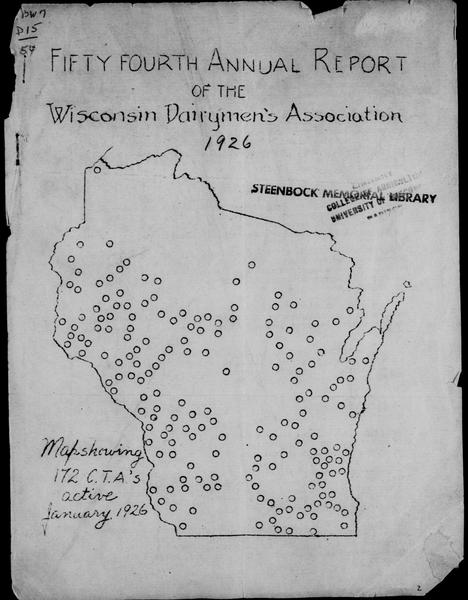 DW7
D15
54
FIFTY FOURTH ANNUAL REPORT
OF THE
Wisconsin Dairymen's Association
1926
STEENBOCK MEMORIAL LIBRARY
LIBRARY
COLLEGE OF AGRICULTURE
UNIVERSITY OF WISCONSIN
MADISON
Map showing
172 C.T.A.'s
active
January 1926
2